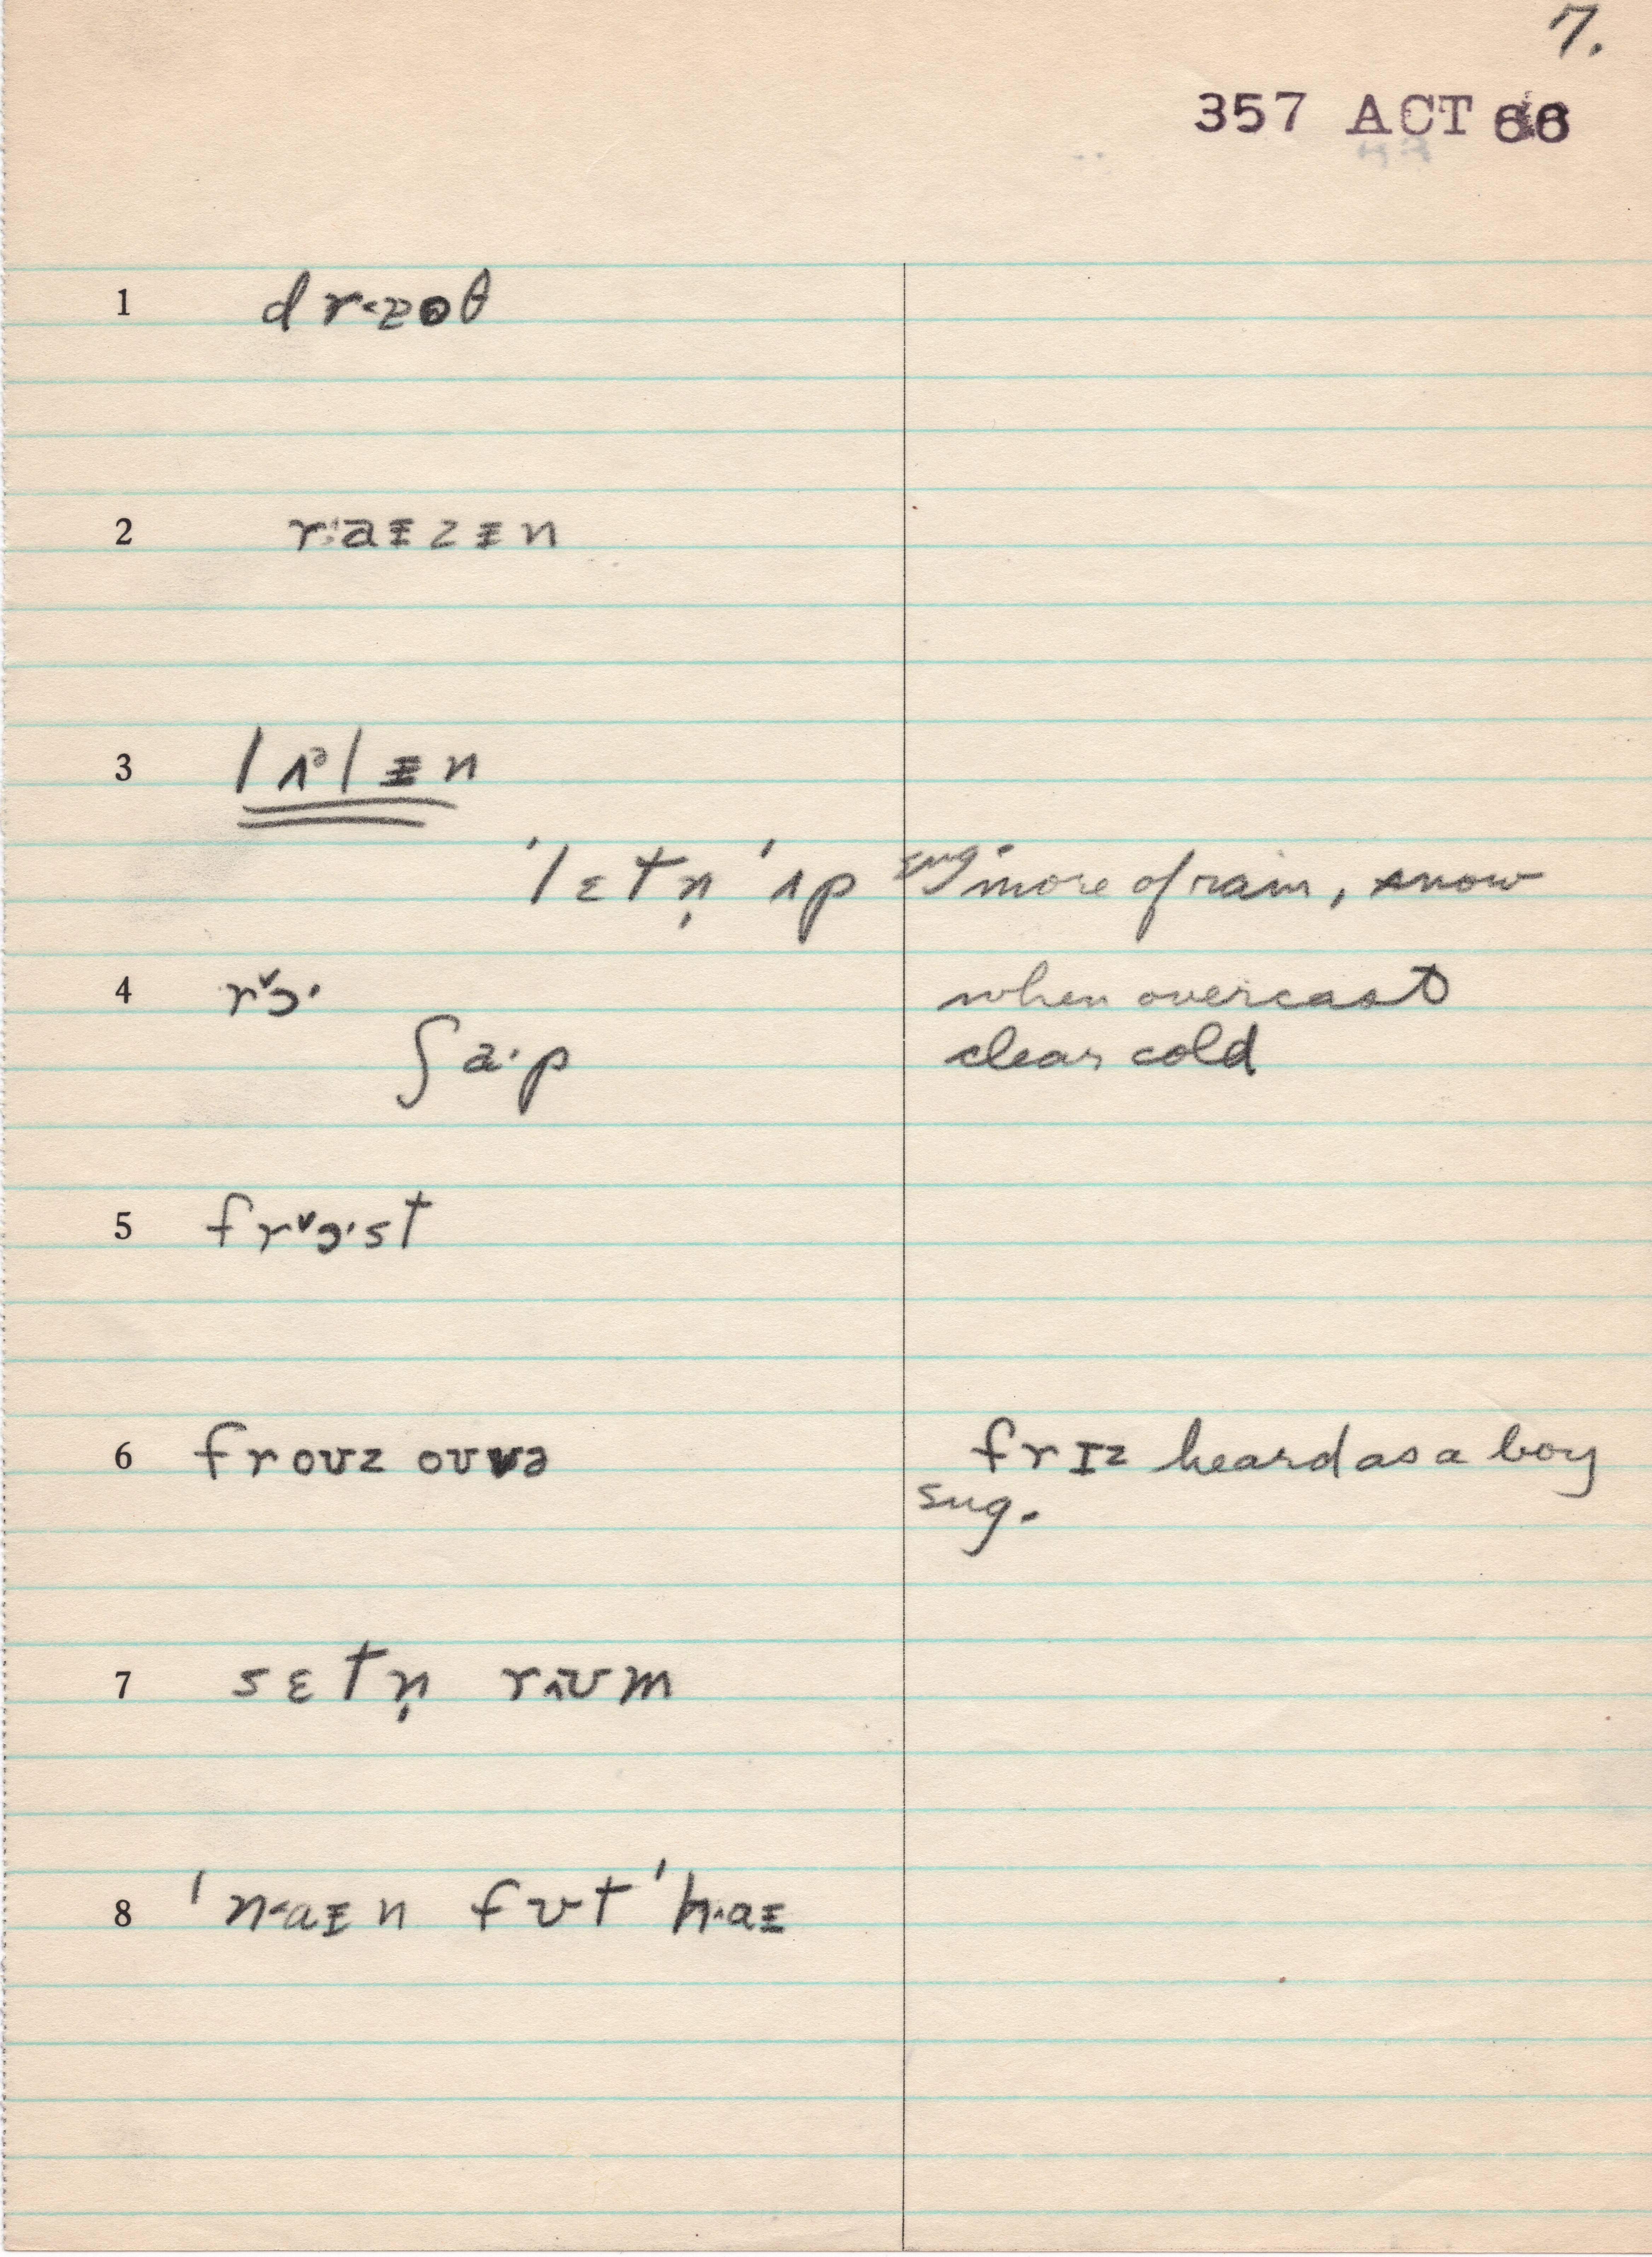 7.
357 ACT 66
1 dr<zəθ
2 r:aɪzɪn
3 lʌlɪn
'lɛtn̩ 'ʌp sug. more of rain, snow
4 rᵛɔ· when overcast
ʃa·p clear cold
5 frᵛɔ·st
6 froʊz oʊvə frɪz heard as a boy
sug.
7 sɛtn̩ rʌʊm
8 'n<aɪn fʊt 'h·aɪ